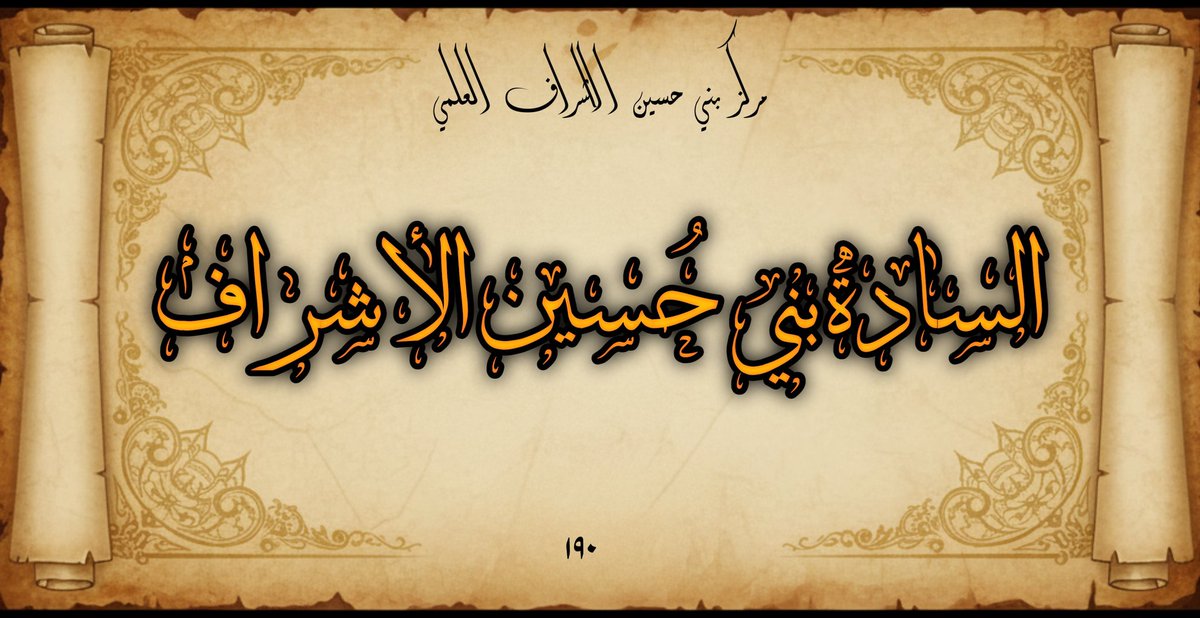 مركز بني حسين الأشراف العلمي
السادة بني حُسين الأشراف
١٩٠